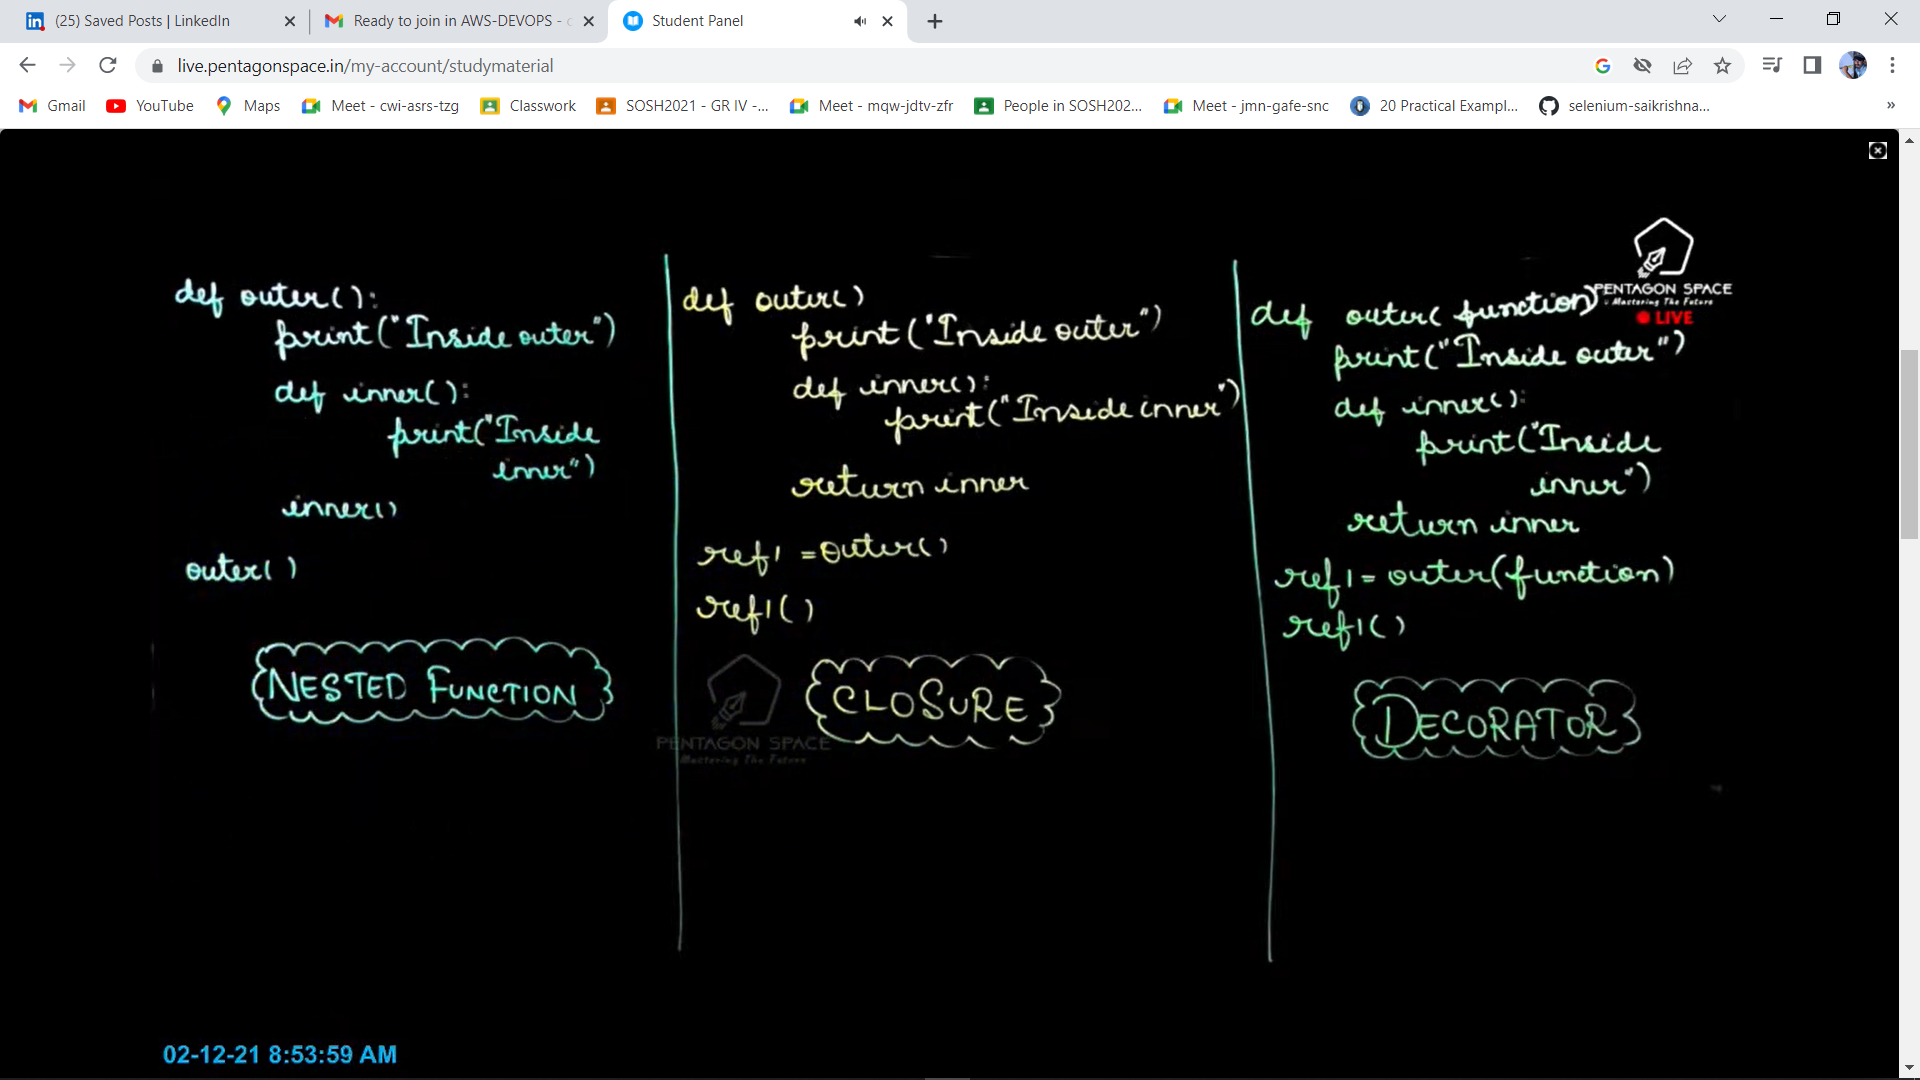 (25) Saved Posts | LinkedIn
Ready to join in AWS-DEVOPS -
Student Panel
live.pentagonspace.in/my-account/studymaterial
Gmail
YouTube
Maps
Meet - cwi-asrs-tzg
Classwork
SOSH2021 - GR IV -...
Meet - mqw-jdtv-zfr
People in SOSH202...
Meet - jmn-gafe-snc
20 Practical Exampl...
selenium-saikrishna...
»
def outer():
print("Inside outer")
def inner():
print("Inside
inner")
inner()
outer()
NESTED FUNCTION
def outer()
print("Inside outer")
def inner():
print("Inside inner")
return inner
ref1 = outer()
ref1()
CLOSURE
PENTAGON SPACE
Mastering The Future
PENTAGON SPACE
Mastering The Future
LIVE
def outer(function)
print("Inside outer")
def inner():
print("Inside
inner")
return inner
ref1 = outer(function)
ref1()
DECORATOR
02-12-21 8:53:59 AM